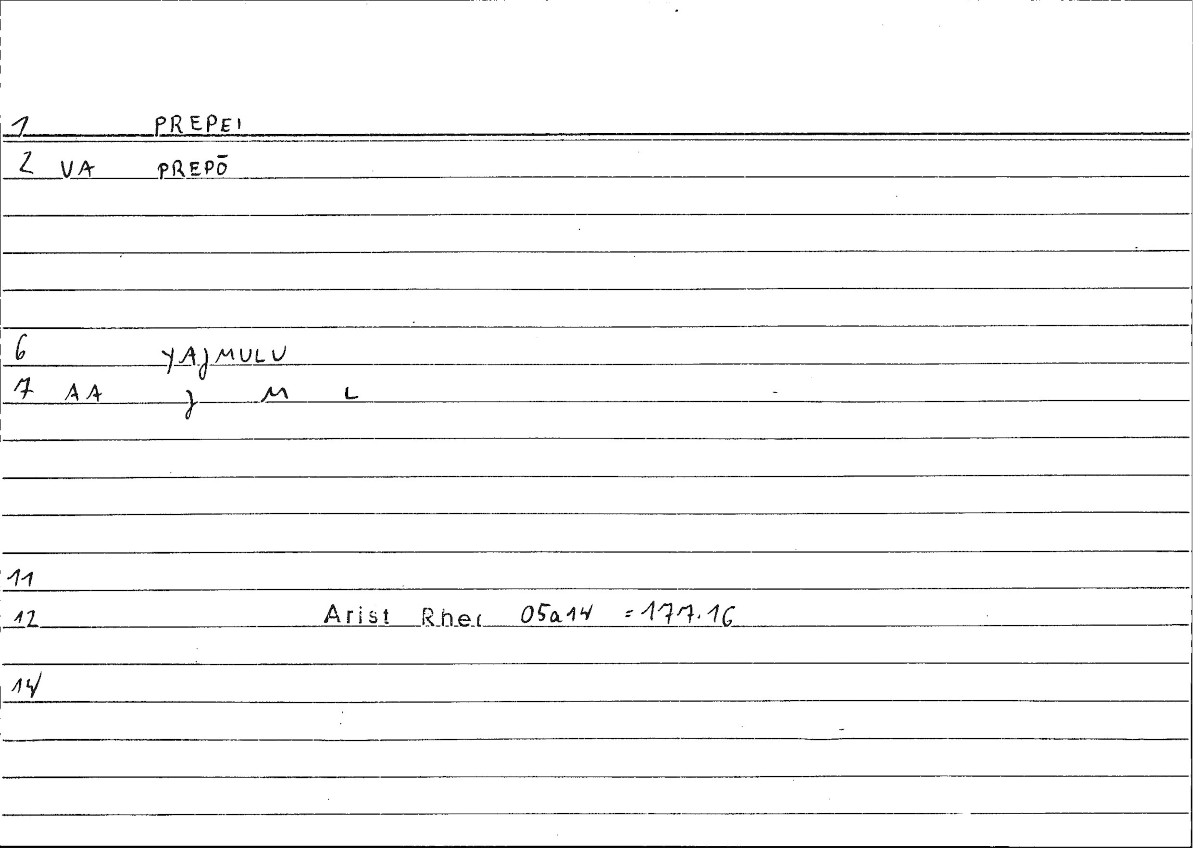 1 PREPEI
2 VA PREPŌ
6 YAJMULU
7 AA J M L
11
12 Arist Rhet 05a14 =177.16
14